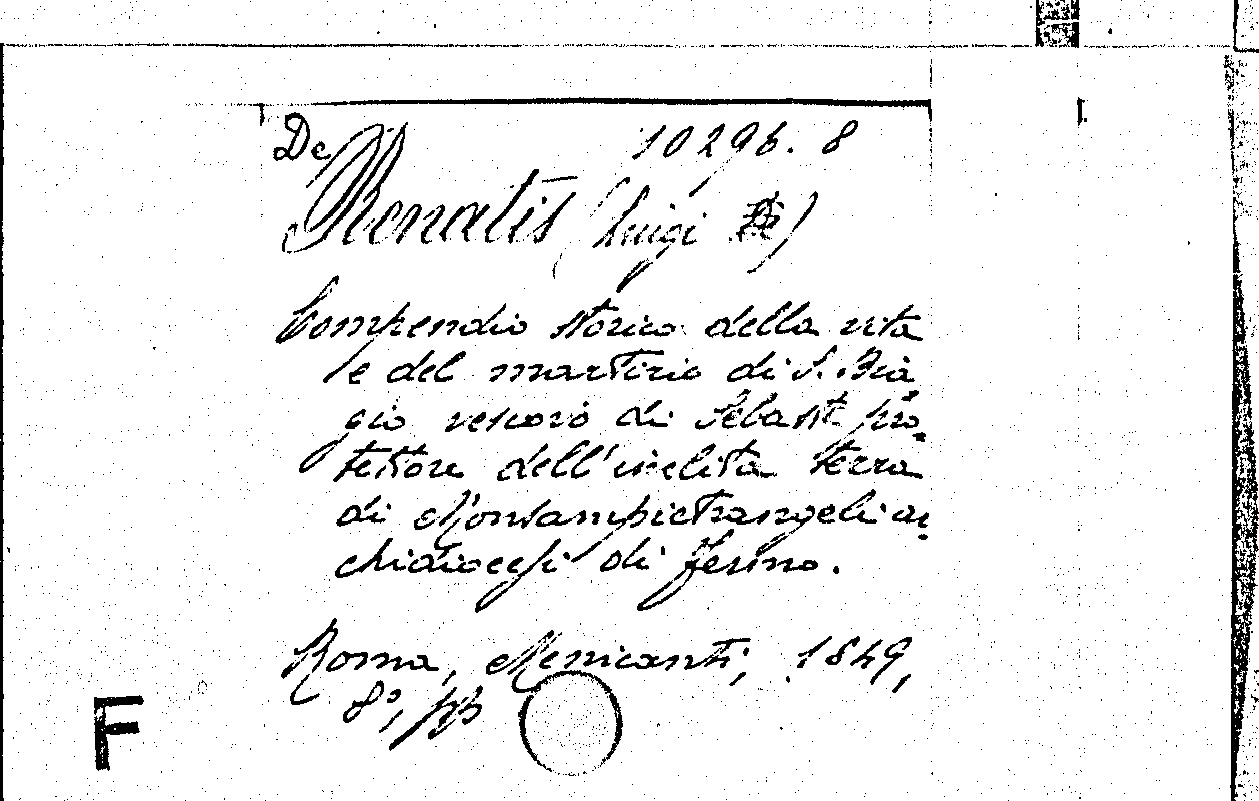 De 10296. 8
Renatis (Luigi De)
Compendio storico della vita
e del martirio di S. Bia-
gio vescovo di Sebaste pro-
tettore dell'inclita terra
di Montsampietrangeli ar-
chidiocesi di Fermo.
Roma, Menicanti, 1849,
8°, pp
F